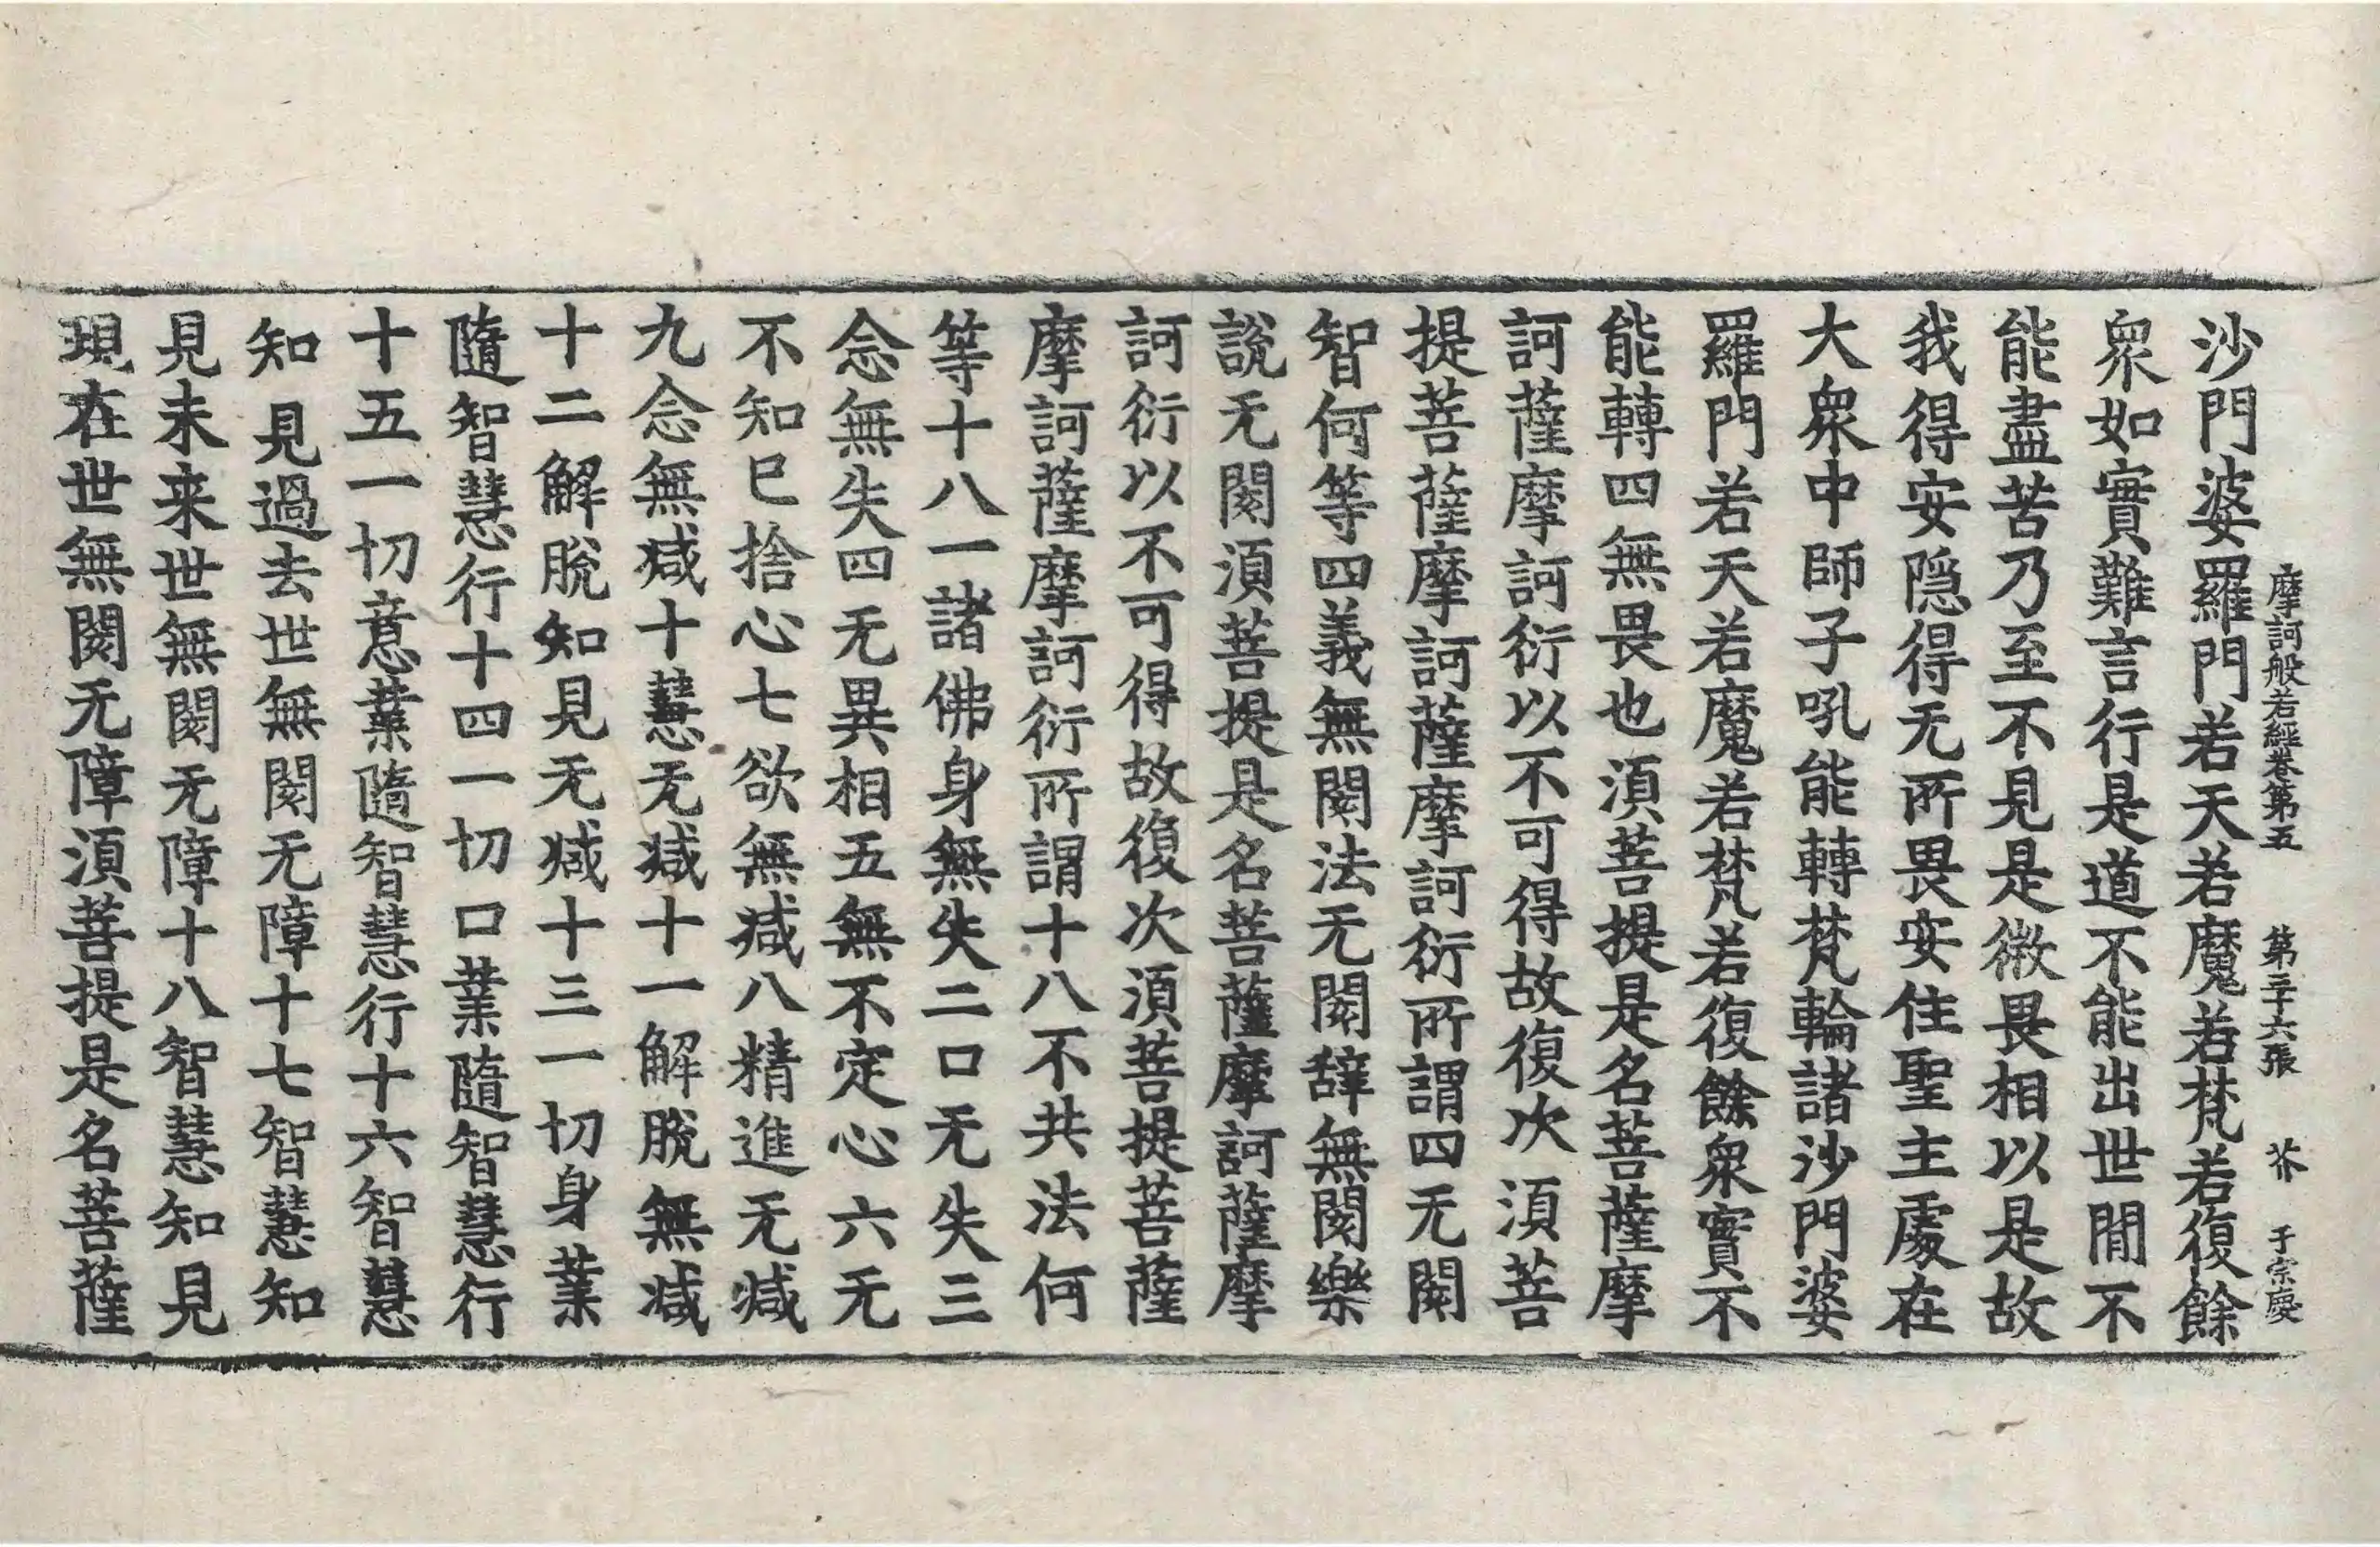 摩訶般若經卷第五　第三十六張　芥　于宗慶
沙門婆羅門若天若魔若梵若復餘
衆如實難言行是道不能出世閒不
能盡苦乃至不見是微畏相以是故
我得安隠得无所畏安住聖主處在
大衆中師子吼能轉梵輪諸沙門婆
羅門若天若魔若梵若復餘衆實不
能轉四無畏也湏菩提是名菩薩摩
訶薩摩訶衍以不可得故復次湏菩
提菩薩摩訶薩摩訶衍所謂四无閡
智何等四義無閡法无閡辞無閡樂
說无閡湏菩提是名菩薩摩訶薩摩
訶衍以不可得故復次湏菩提菩薩
摩訶薩摩訶衍所謂十八不共法何
等十八一諸佛身無失二口无失三
念無失四无異相五無不定心六无
不知已捨心七欲無減八精進无減
九念無減十慧无減十一解脫無減
十二解脫知見无減十三一切身業
隨智慧行十四一切口業隨智慧行
十五一切意業隨智慧行十六智慧
知見過去世無閡无障十七智慧知
見未来世無閡无障十八智慧知見
現在世無閡无障湏菩提是名菩薩